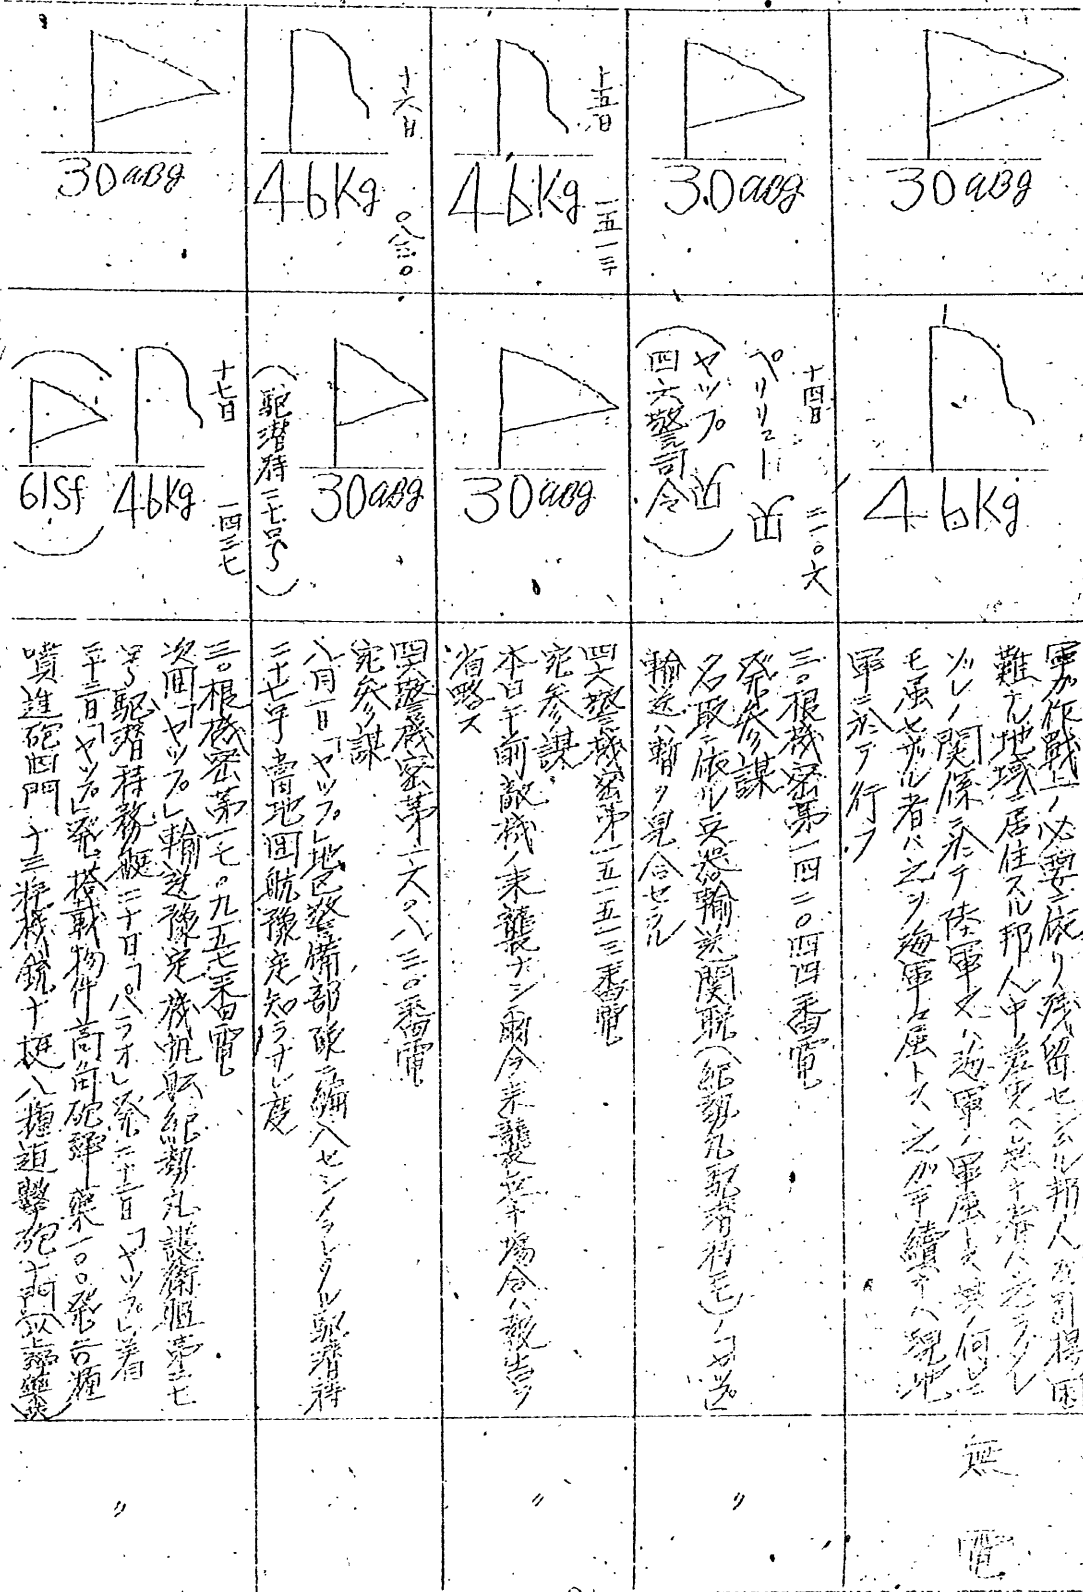 30aBg
46Kg
軍ガ作戦上ノ必要ニ依リ残留セシムル邦人及引揚困
難ナル地域ニ居住スル邦人中差支ヘ無キ者ハ之ヲ夫レ
ゾレノ関係ニ於テ陸軍又ハ海軍ノ軍属トス其ノ何レニ
モ属セザル者ハ之ヲ海軍々属トス之ガ手續キハ現地
軍ニ於テ行フ
無電
30aBg
十四日 二一〇六
ペリリュー
ヤップ
(四六警司令)
三〇根機密第一四二〇四四番電
発参謀
名取ニ依ル兵器輸送ニ関聯
輸送ハ暫ク見合セル
〃
十五日 一五一三
46Kg
30aBg
四六警機密第一五一五一三番電
宛参謀
本日午前敵機ノ来襲ナシ爾今来襲無キ場合ハ報告ヲ
省略ス
〃
十六日 〇八三〇
46Kg
30aBg
(駆潜特二七号)
四六警機密第一六〇八三〇番電
宛参謀
八月一日「ヤップ」地区警備部隊ニ編入セシメラレタル駆潜特
二十七号当地回航豫定知ラサレ度
〃
30aBg
十七日 一四三七
46Kg
(61Sf)
三〇根機密第一七〇九五七番電
次回「ヤップ」輸送豫定機帆船紀勢丸護衛艇第二七
号駆潜特務艇二十日「パラオ」発二十二日「ヤップ」着
二十三日「ヤップ」発搭載物件高角砲弾薬一〇〇発
噴進砲四門十三粍機銃十挺八糎迫撃砲十門